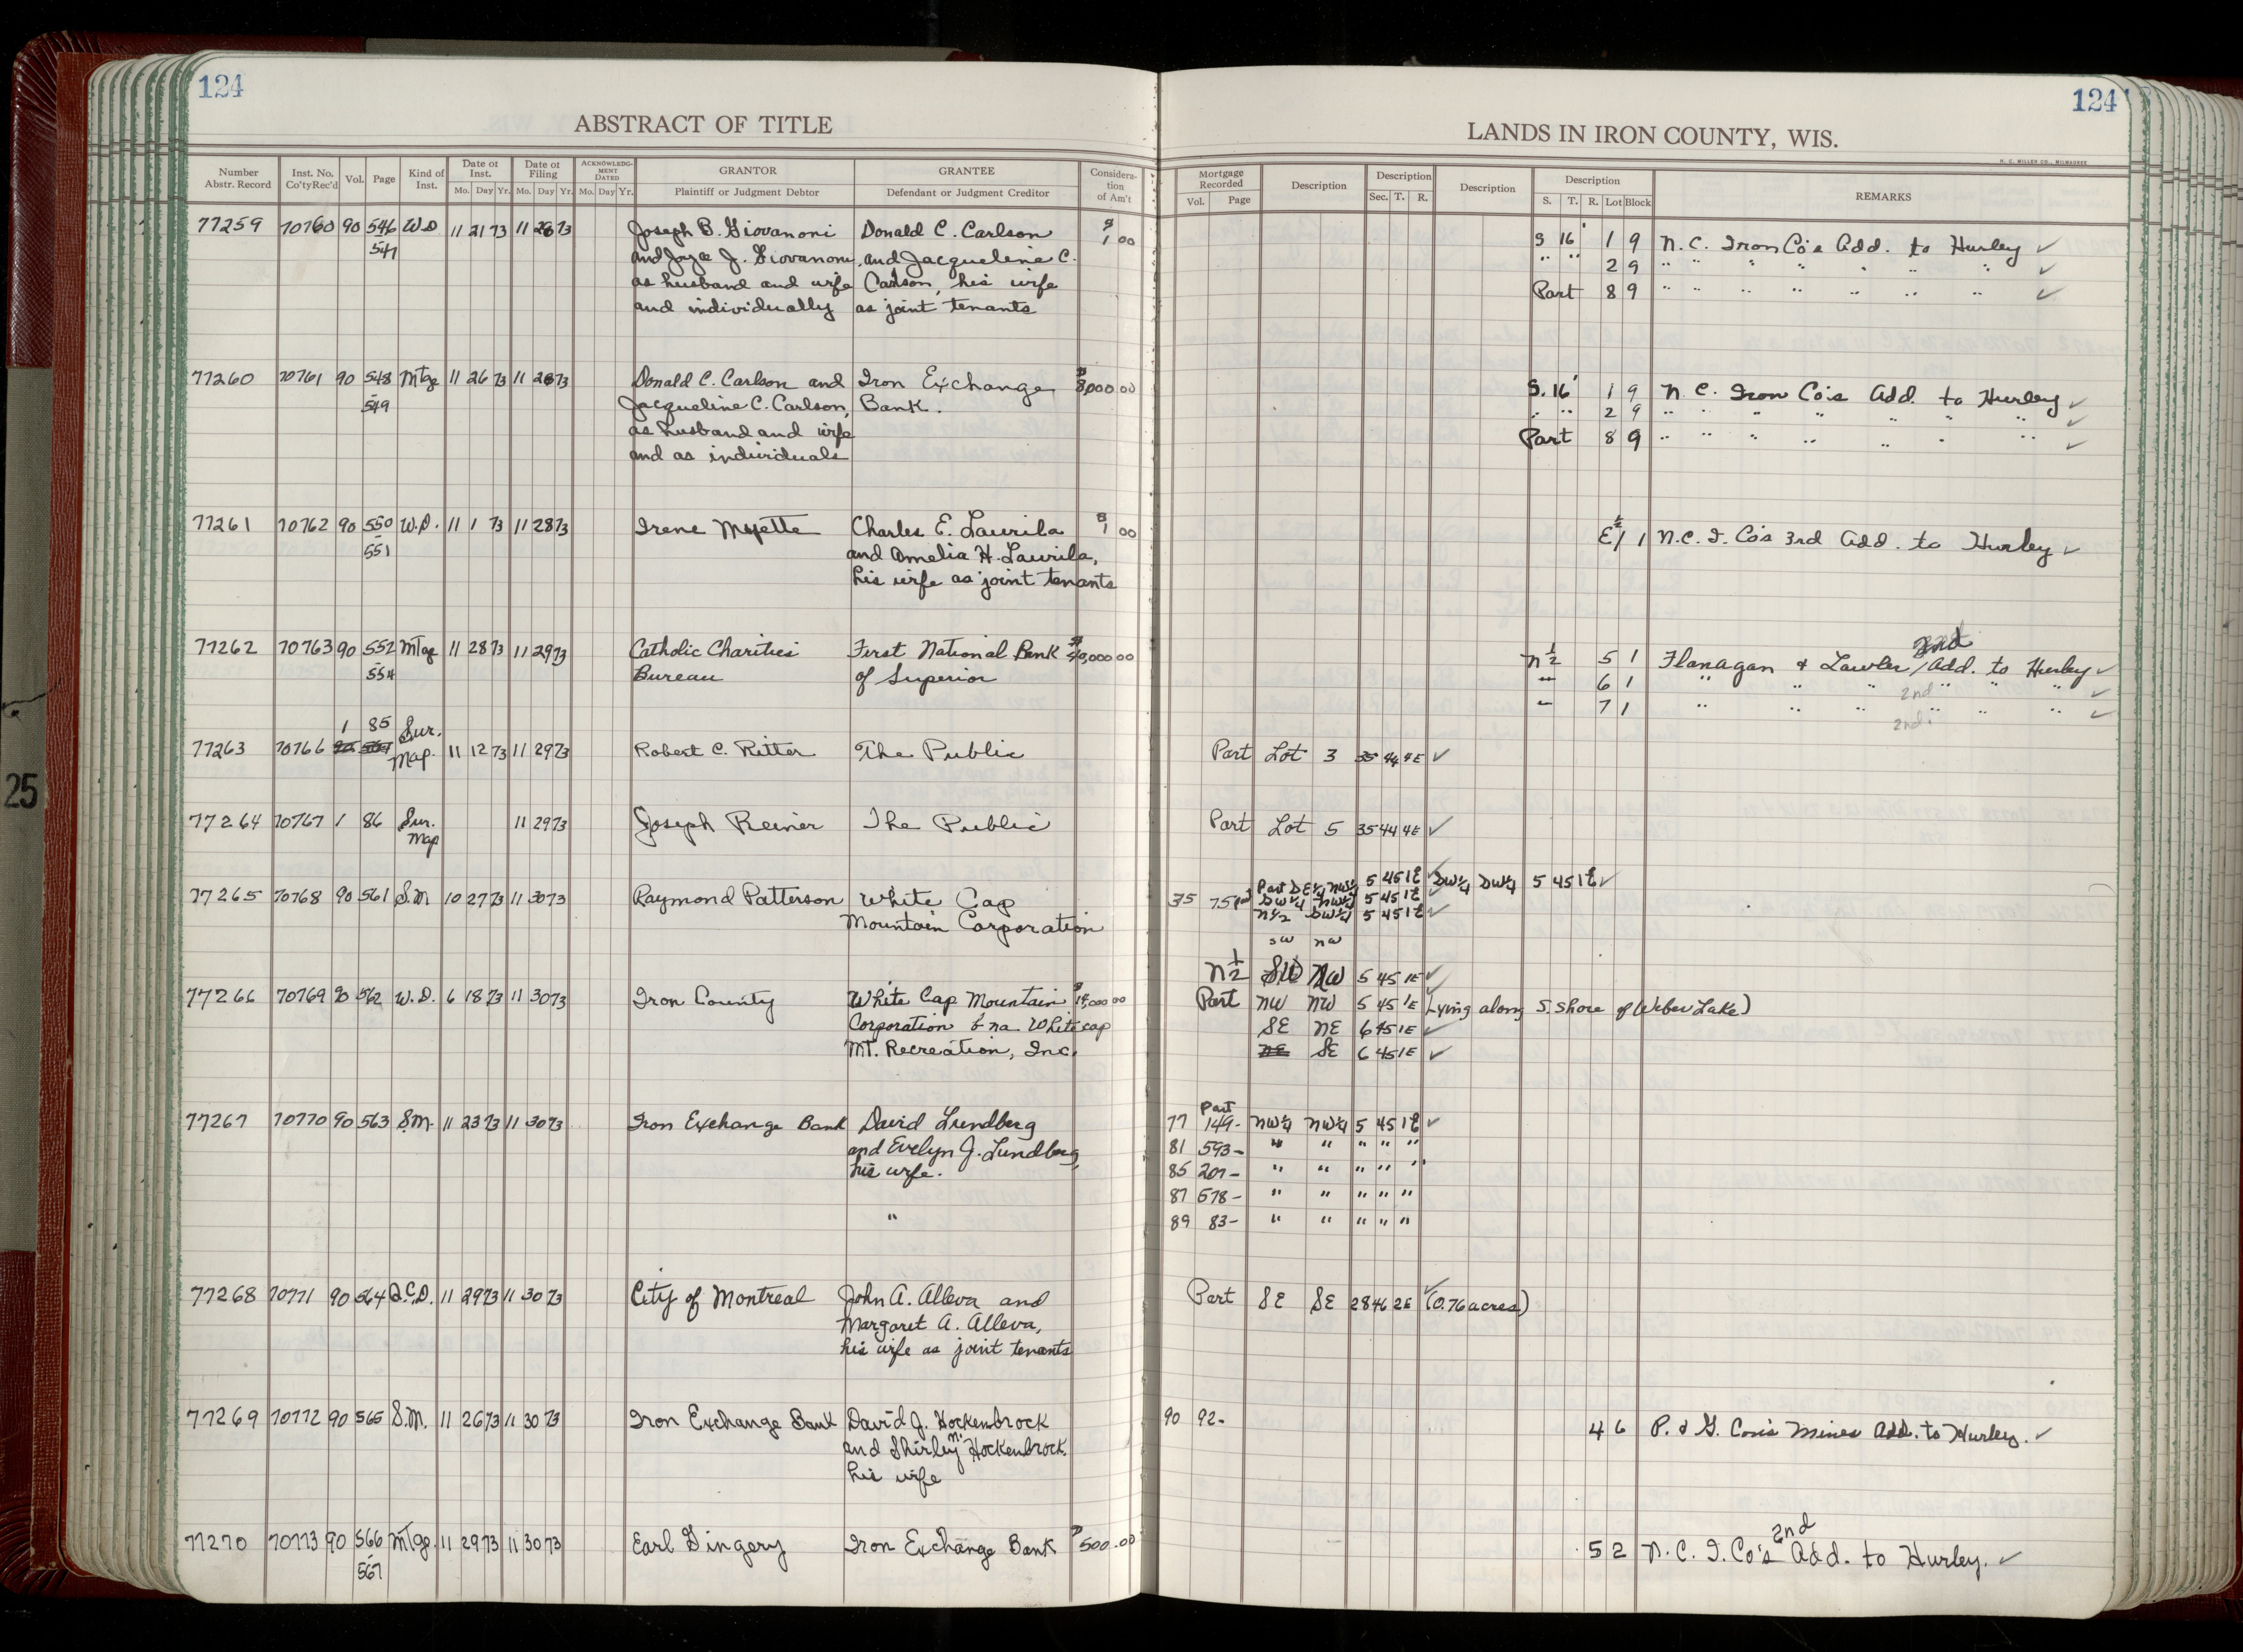 124
124
ABSTRACT OF TITLE
LANDS IN IRON COUNTY, WIS.
H. C. MILLER CO., MILWAUKEE
Number Abstr. Record
Inst. No. Co'ty Rec'd
Vol.
Page
Kind of Inst.
Date of Inst.
Mo. Day Yr.
Date of Filing
Mo. Day Yr.
ACKNOWLEDGMENT DATED
Mo. Day Yr.
GRANTOR
Plaintiff or Judgment Debtor
GRANTEE
Defendant or Judgment Creditor
Consideration of Am't
Mortgage Recorded
Vol. Page
Description
Description
Sec. T. R.
Description
Description
S. T. R. Lot Block
REMARKS
77259 70760 90 546 W.D 11 21 73 11 28 73 Joseph B. Giovanoni Donald C. Carlson $1 00 S 16' 1 9 N.C. Iron Co's Add. to Hurley ✓
547 and Joyce J. Giovanoni, and Jacqueline C. " " 2 9 " " " " " " " ✓
as husband and wife Carlson, his wife Part 8 9 " " " " " " " ✓
and individually as joint tenants
77260 70761 90 548 Mtge 11 26 73 11 28 73 Donald C. Carlson and Iron Exchange $8,000 00 S. 16' 1 9 N.C. Iron Co's Add. to Hurley ✓
549 Jacqueline C. Carlson, Bank. " " 2 9 " " " " " " " ✓
as husband and wife Part 8 9 " " " " " " " ✓
and as individuals
77261 70762 90 550 W.D. 11 1 73 11 28 73 Irene Myette Charles E. Laurila $1 00 E½ 1 1 N.C.I. Co's 3rd Add. to Hurley ✓
551 and Amelia H. Laurila,
his wife as joint tenants
77262 70763 90 552 Mtge 11 28 73 11 29 73 Catholic Charities First National Bank 000 00 N½ 5 1 Flanagan & Lawler / 2nd Add. to Hurley ✓
554 Bureau of Superior " 6 1 " " " 2nd " " " ✓
" 7 1 " " " 2nd " " " ✓
1 85 Sur.
77263 70766 Map. 11 12 73 11 29 73 Robert C. Ritter The Public Part Lot 3 35 44 4E ✓
77264 70767 1 86 Sur. Map 11 29 73 Joseph Reiner The Public Part Lot 5 35 44 4E ✓
77265 70768 90 561 S.M 10 27 73 11 30 73 Raymond Patterson White Cap 35 75 Part SE¼ NW¼ 5 45 1E ✓ SW¼ SW¼ 5 45 1E ✓
Mountain Corporation SW¼ NW¼ 5 45 1E ✓
N½ SW¼ 5 45 1E ✓
SW NW
N½ SW NW 5 45 1E ✓
77266 70769 90 562 W.D. 6 18 73 11 30 73 Iron County White Cap Mountain 000 00 Part NW NW 5 45 1E (Lying along S. Shore of Weber Lake)
Corporation f na Whitecap SE NE 6 45 1E ✓
MT. Recreation, Inc. NE SE 6 45 1E ✓
77267 70770 90 563 S.M. 11 23 73 11 30 73 Iron Exchange Bank David Lundberg 77 149- Part NW¼ NW¼ 5 45 1E ✓
and Evelyn J. Lundberg, 81 593- " " " " "
his wife. 85 207- " " " " "
87 578- " " " " "
" 89 83- " " " " "
77268 70771 90 564 Q.C.D. 11 29 73 11 30 73 City of Montreal John A. Alleva and Part SE SE 28 46 2E ✓ (0.76 acres)
Margaret A. Alleva,
his wife as joint tenants
77269 70772 90 565 S.M. 11 26 73 11 30 73 Iron Exchange Bank David J. Hockenbrock 90 92- 4 6 P. & G. Con's Mines Add. to Hurley. ✓
and Shirley M. Hockenbrock
his wife
77270 70773 90 566 Mtge. 11 29 73 11 30 73 Earl Gingery Iron Exchange Bank $500.00 5 2 N.C.I. Co's 2nd Add. to Hurley. ✓
567
25